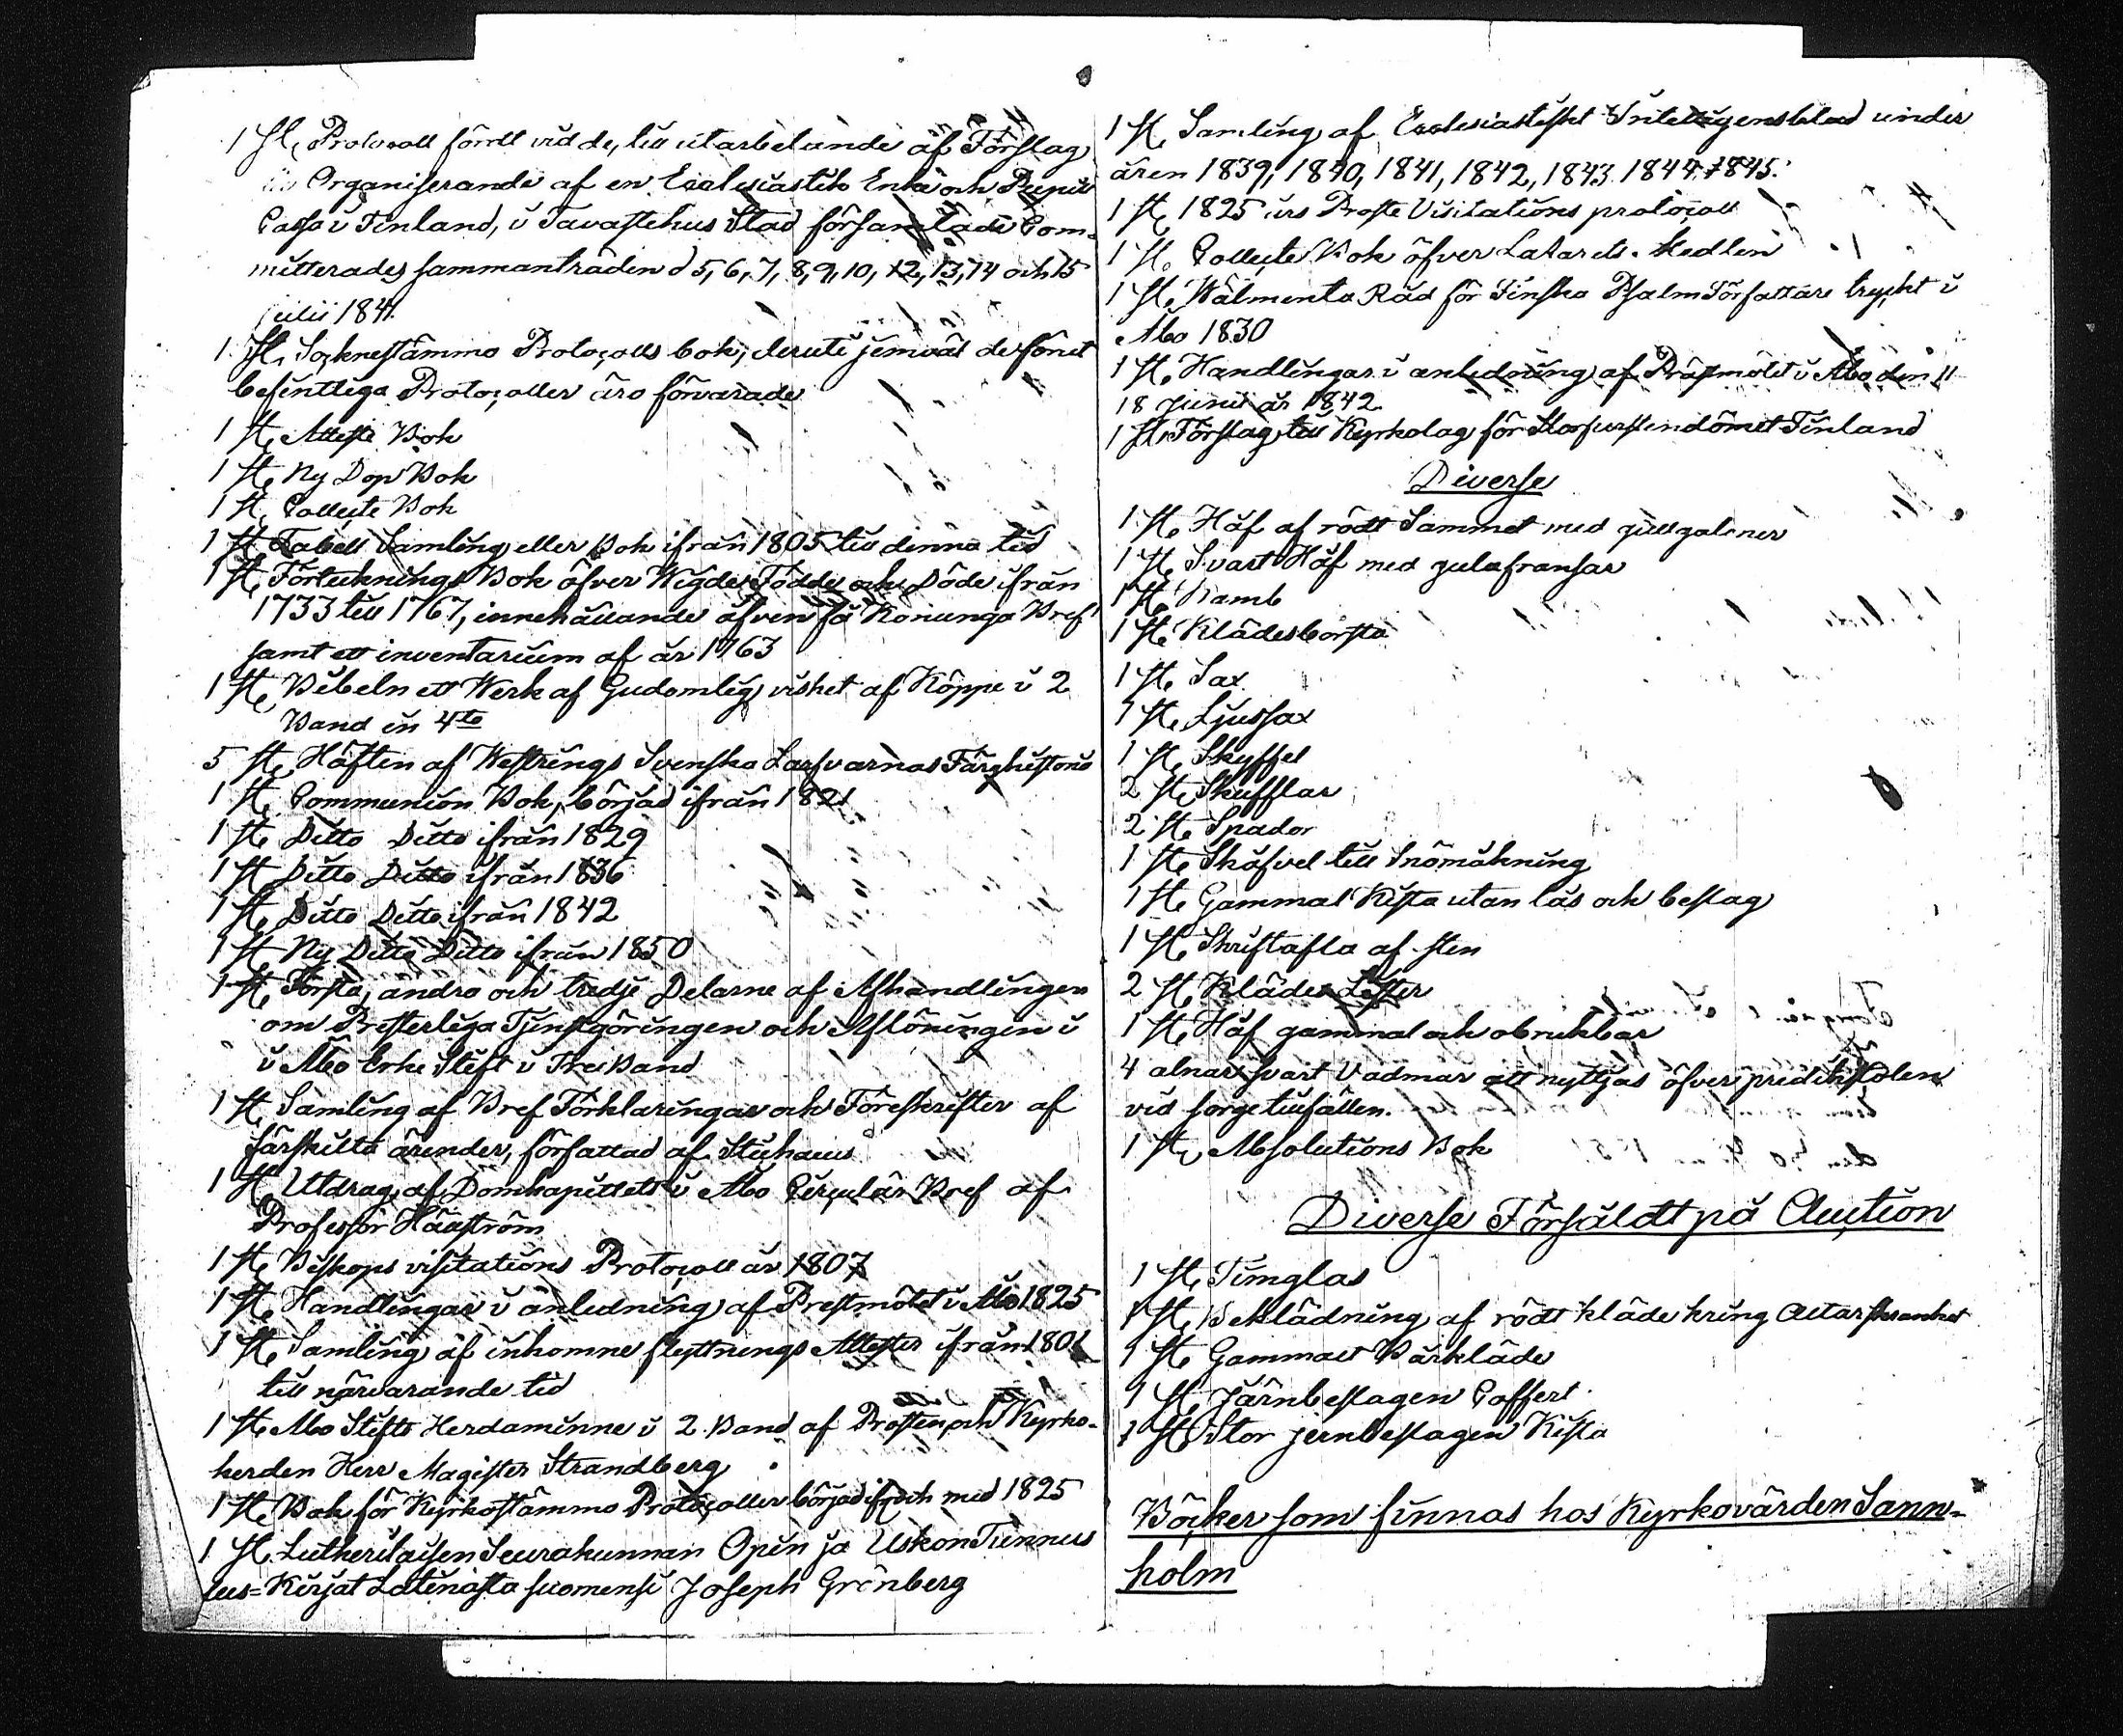 1 St, Protocoll fördt vid de, till utarbetande af Förslag
Organiserande af en Ecclesiastik Enke och Pupill
Cassa i Finland, i Tavastehus Stad församlade Com-
mitterades sammanträden d 5, 6, 7, 8, 9, 10, 12, 13, 14 och 15
julii 1841.
1 St, Socknestämmo Protocolls bok, deruti jemväl de förut
befintliga Protocoller äro förvarade
1 St, Attest Bok
1 St, Ny Dop Bok
1 St, Collecte Bok
1 St, Tabell Samling eller Bok ifrån 1805 till denna tid
1 St, Förtecknings Bok öfver Wigde, Födde och Döde ifrån
1733 till 1767, innehållande äfven få Konunga Bref
samt ett inventarium af år 1763
1 St, Bibeln ett Werk af Gudomlig vishet af Köppe i 2
Band in 4to
5 St, Häften af Westrings Svenska Lafvarnas Färghistoria
1 St, Communion Bok, börjad ifrån 1821
1 St, Ditto Ditto ifrån 1829
1 St, Ditto Ditto ifrån 1836
1 St, Ditto Ditto ifrån 1842
1 St, Ny Ditto Ditto ifrån 1850
1 St, Första, andra och tredje Delarne af Afhandlingen
om Presterliga Tjenstgöringen och Aflöningen i
i Åbo Erke Stift i Tre Band
1 St, Samling af Bref Förklaringar och Föreskrifter af
särskilta ärender, författad af
1 St, Utdrag af Domkapitlets i Åbo Circulär Bref af
Professor Häaström
1 St, Biskops visitations Protocoll år 1807
1 St, Handlingar i anledning af Prestmötet i Åbo 1825
1 St, Samling af inkomne flyttnings Attester ifrån 1801
till närvarande tid
1 St, Åbo Stifts Herdaminne i 2 Band af Prosten och Kyrko-
herden Herr Magister Strandberg
1 St, Bok för Kyrkostämmo Protocoller börjad ifr. och med 1825
1 St, Lutherilaisen Seurakunnan Opin ja Uskon Tunnus
tus=Kirjat Latinasta suomensi Joseph Grönberg
1 St, Samling af Ecclesiastiskt Intelligensblad under
åren 1839, 1840, 1841, 1842, 1843. 1844. 1845.
1 St, 1825 års Proste Visitations protocoll
1 St, Collecte Bok öfver Lazarets. Medlen
1 St, Wälmenta Råd för Finska Psalm Författare tryckt i
Åbo 1830
1 St, Handlingar i anledning af Prästmötet i Åbo den 11
18 Junii år 1842.
1 St, Förslag till Kyrkolag för Storfurstendömet Finland
Diverse
1 St, Håf af rödt Sammet med gullgaloner
1 St, Svart Håf med gula fransar
1 St, Kamb
1 St, Klädesborsta
1 St, Sax
1 St, Ljussax
1 St, Skyffel
2 St, Skufflar
2 St, Spador
1 St, Skåfvel till Snömåkning
1 St, Gammal Kista utan lås och beslag
1 St, Skriftafla af sten
2 St, Klädes Lister
1 St, Håf gammal och obrukbar
4 alnar svart Vadmar att nyttjas öfver predikstolen
vid sorgetillfällen.
1 St, Absolutions Bok
Diverse Försåldt på Auction
1 St, Timglas
1 St, Beklädning af rödt kläde kring Altarskranket
1 St, Gammalt Bårkläde
1 St, Järnbeslagen Coffert
1 St, Stor jernbeslagen Kista
Böcker som finnas hos Kyrkovärden Sann-
holm